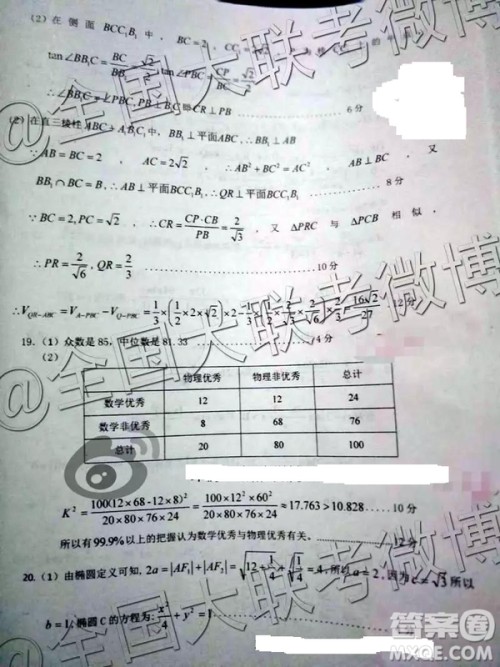 (2)在侧面 BCC₁B₁ 中，BC=2，CC₁
tan∠BB₁C = BC/BB₁ = √2/2 tan∠PBC = CP/BC = √2/2
∴∠BB₁C=∠PBC, PB⊥B₁C ∴CR⊥PB ………… 6分
(2)在直三棱柱ABC-A₁B₁C₁中，BB₁⊥平面ABC，∴BB₁⊥AB
∵AB=BC=2，AC=2√2，∴AB²+BC²=AC²，AB⊥BC，又
BB₁∩BC=B，∴AB⊥平面BCC₁B₁，∴QR⊥平面BCC₁B₁ ………… 8分
∵BC=2,PC=√2，∴CR=CP·CB/PB=2/√3，又 ΔPRC 与 ΔPCB 相似，
∴PR=2/√6，QR=2/3 ………… 10分
∴V_{QR-ABC}=V_{A-PBC}-V_{Q-PBC}=1/3×(1/2×2×√2)×2-1/3×(1/2×2/√3×2/√6)×2/3=16√2/27 12分
19.（1）众数是85，中位数是81.33 ………… 4分
(2)
物理优秀 物理非优秀 总计
数学优秀 12 12 24
数学非优秀 8 68 76
总计 20 80 100
K²=100(12×68-12×8)²/20×80×76×24=100×12²×60²/20×80×76×24≈17.763>10.828 ….. 10分
所以有99.9%以上的把握认为数学优秀与物理优秀有关。 ………… 12分
20.（1）由椭圆定义可知，2a=|AF₁|+|AF₂|=√(12+1/4)+√(1/4)=4，所以a=2，因为c=√3所以
b=1，椭圆C的方程为：x²/4+y²=1 …………
@全国大联考微博
@全国大联考微博
@全国大联考微博
答案圈
MXQE.COM